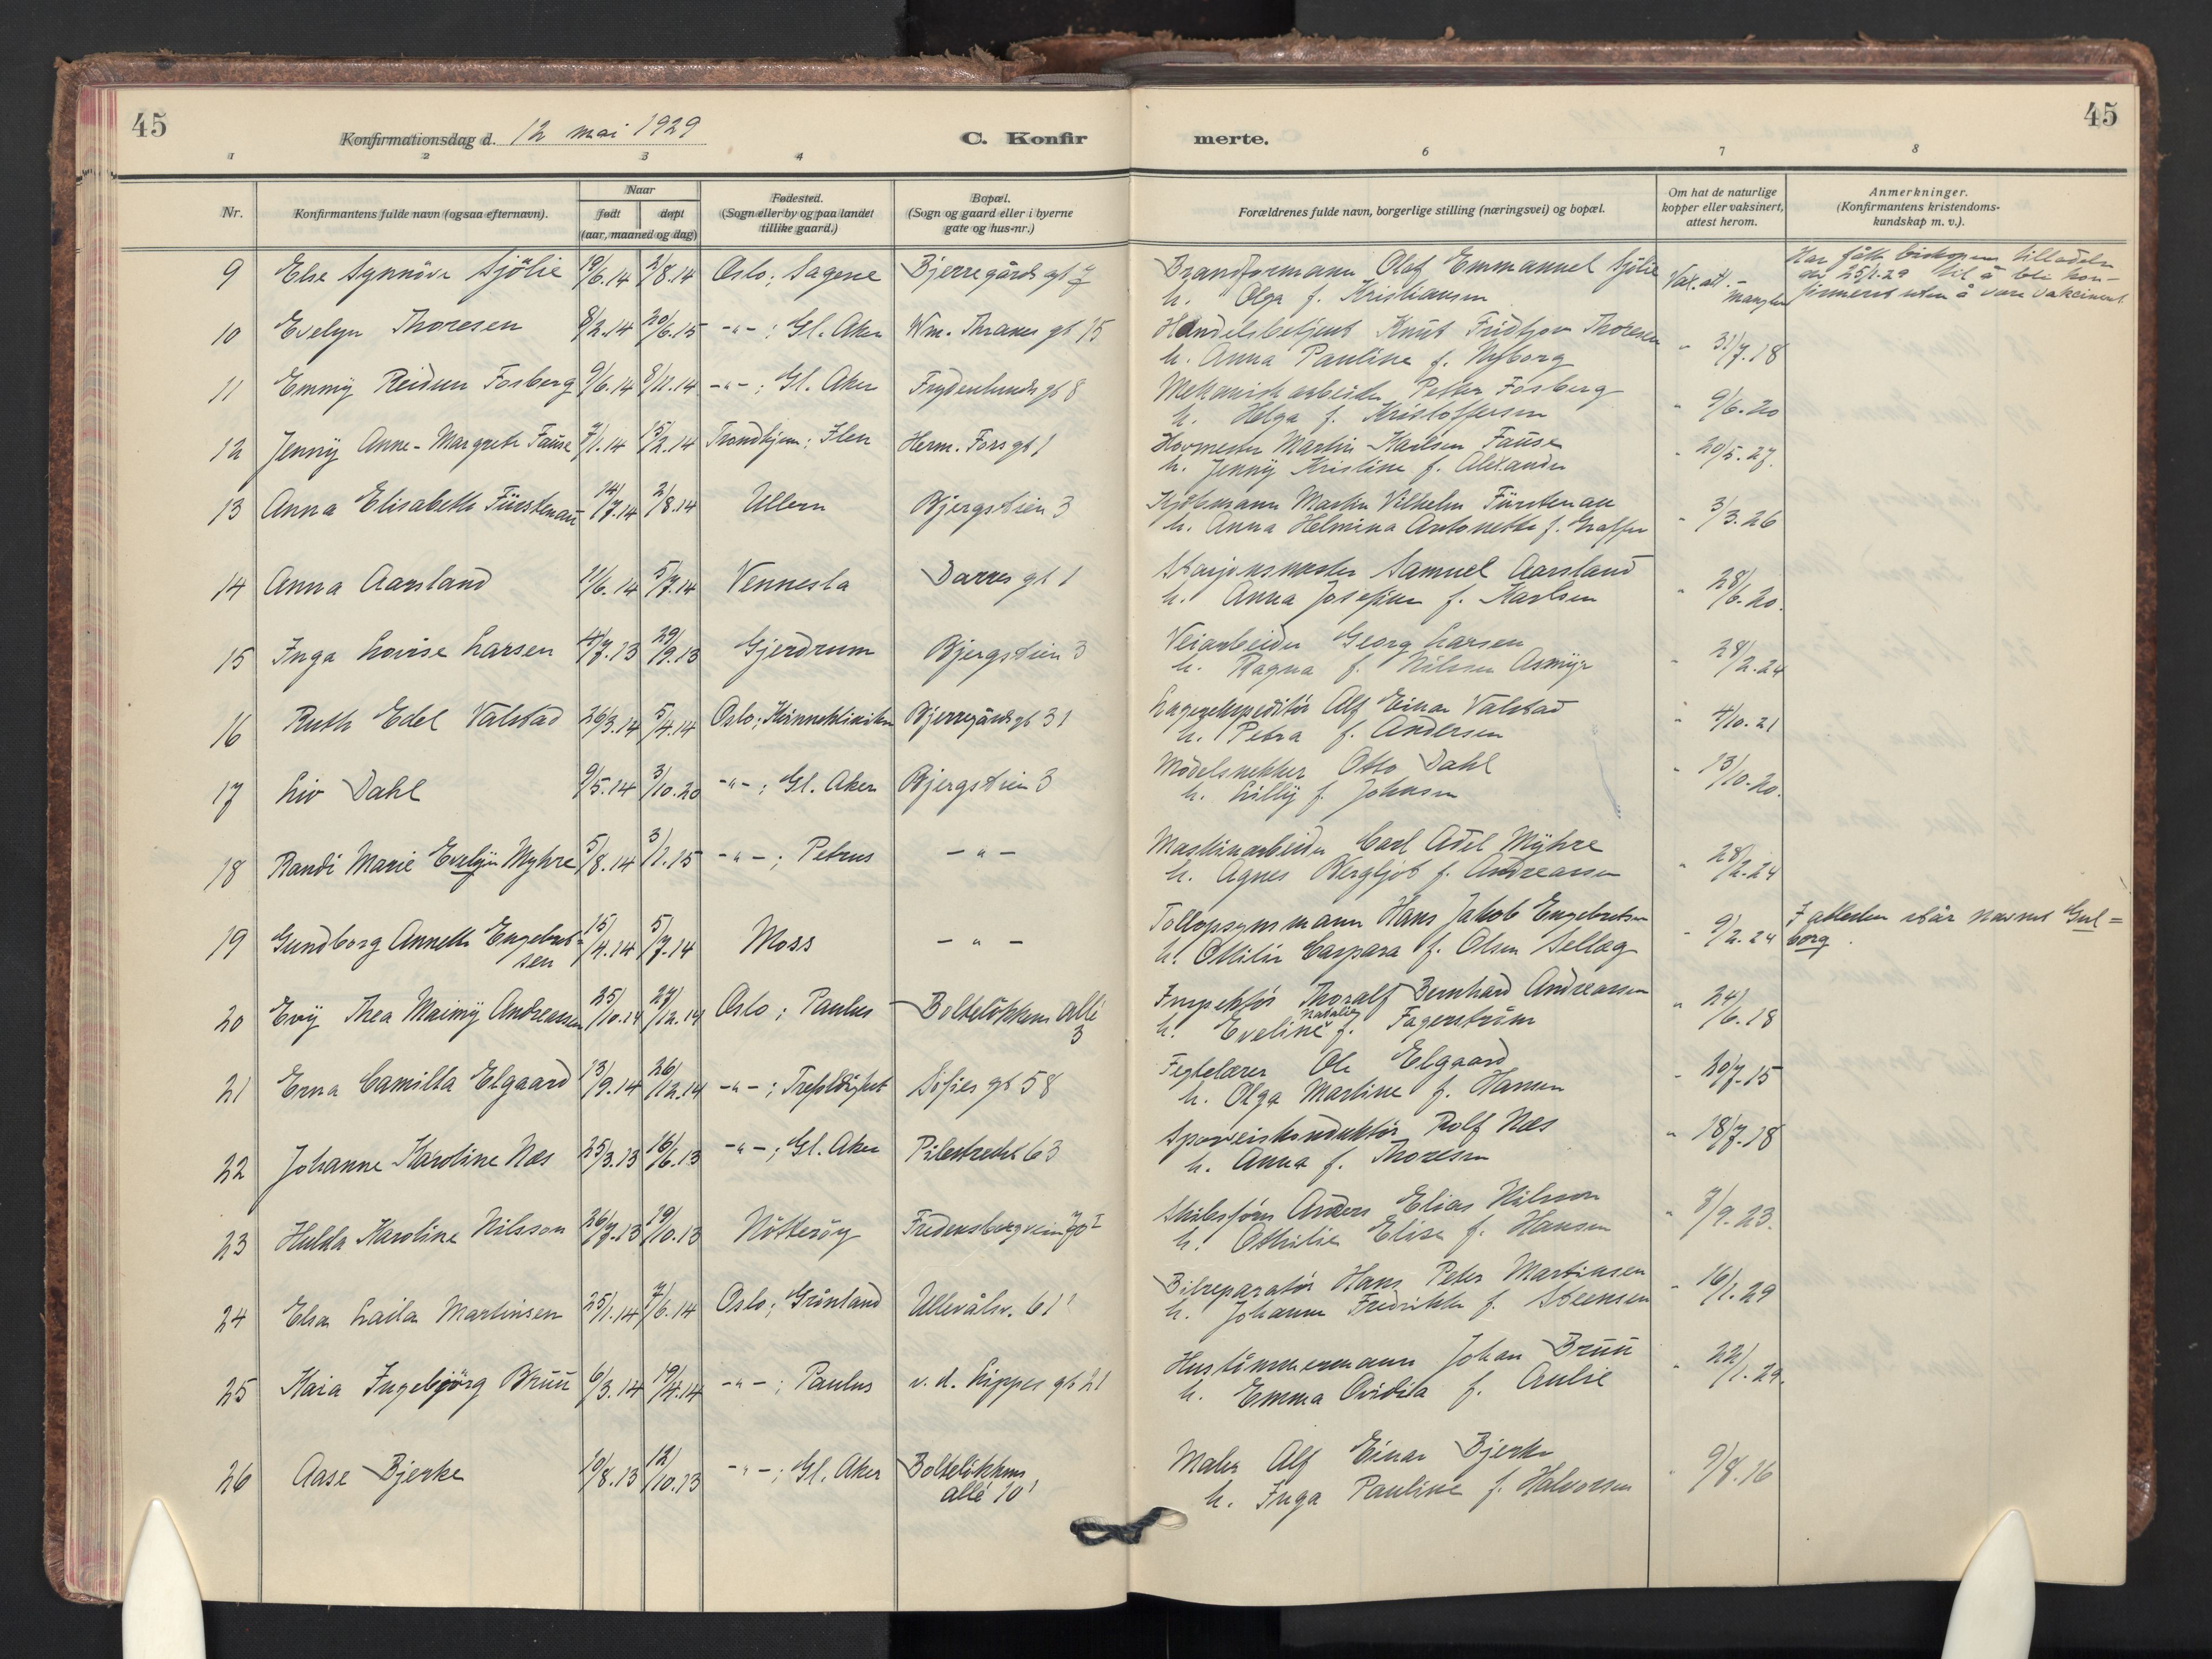 45
Konfirmationsdag d. 12 mai 1929
C. Konfir
merte.
45
1 2 3 4 6 7 8
Nr.
Konfirmantens fulde navn (ogsaa efternavn).
Naar
født
døpt
(aar, maaned og dag)
Fødested.
(Sogn eller by og paa landet
tillike gaard.)
Bopæl.
(Sogn og gaard eller i byerne
gate og hus-nr.)
Forældrenes fulde navn, borgerlige stilling (næringsvei) og bopæl.
Om hat de naturlige
kopper eller vaksinert,
attest herom.
Anmerkninger.
(Konfirmantens kristendoms-
kundskap m. v.).
9 Else Synnöve Sjölie 19/6.14 2/8.14 Oslo; Sagene Bjerregårds gt 7
Brandformann Olaf Emmanuel Sjölie
h. Olga f. Kristiansen
Vax. att. -
mangler
Har fått biskopens tilladelse
av 25/1.29 til å bli kon-
firmeret uten å være vaksinert
10 Evelyn Thoresen 8/2.14 20/6.15 -"-; Gl. Aker Wm. Thranes gt 15
Handelsbetjent Knut Fridtjov Thoresen
h. Anna Pauline f. Nyborg
" 31/7.18
11 Emmy Reidun Fosberg 9/6.14 8/11.14 -"-; Gl. Aker Frydenlunds gt 8
Mekanisk arbeider Petter Fosberg
h. Helga f. Kristoffersen
" 9/6.20
12 Jenny Anne-Margrethe Fause 7/1.14 15/2.14 Trondhjem; Ilen Herm. Fors gt 1
Hovmester Martin Karlsen Fause
h. Jenny Kristine f. Alexander
" 20/5.27.
13 Anna Elisabeth Fürstenau 14/7.14 2/8.14 Ullern Bjergstien 3
Kjöbmann Martin Vilhelm Fürstenau
h. Anna Helmina Antonette f. Graffer
" 3/3.26
14 Anna Aarsland 11/6.14 5/7.14 Vennesla Darres gt 1
Stasjonsmester Samuel Aarsland
h. Anna Josefine f. Karlsen
" 28/6.20.
15 Inga Lovise Larsen 4/7.13 29/9.13 Gjerdrum Bjergstien 3
Veiarbeider Georg Larsen
h. Ragna f. Nilssen Asmyr
" 28/2.24
16 Ruth Edel Valstad 26/3.14 5/4.14 Oslo; Kvinneklinikken Bjerregårds gt 31
Lagerekspeditör Alf Einar Valstad
h. Petra f. Andersen
" 4/10.21
17 Liv Dahl 9/5.14 3/10.20 -"-; Gl. Aker Bjergstien 3
Modelsnekker Otto Dahl
h. Lilly f. Johnsen
" 13/10.20.
18 Randi Marie Evelyn Myhre 5/8.14 3/1.15 -"-; Petrus -"-
Maskinarbeider Carl Axel Myhre
h. Agnes Bergljot f. Andreassen
" 28/2.24
19 Gundborg Annette Engebret-
sen 15/4.14 5/7.14 Moss -"-
Tollopsynsmann Hans Jakob Engebretsen
h. Ottilie Caspara f. Olsen Sellæg
" 9/2.24
I attesten står navnet Gul=
borg.
20 Evy Thea Maimy Andreassen 25/10.14 27/12.14 Oslo; Paulus Boltelökkens allé
3
Inspektör Thoralf Bernhard Andreassen
h. Eveline Natalie f. Fagerström
" 24/6.18
21 Erna Camilla Elgaard 13/9.14 26/12.14 -"-; Trefoldighet Sofies gt 58
Fegtelærer Ole Elgaard
h. Olga Martine f. Hansen
" 20/7.15
22 Johanne Karoline Næs 25/3.13 16/6.13 -"-; Gl. Aker Pilestredet 63
Sporveiskonduktör Rolf Næs
h. Anna f. Thoresen
" 18/7.18
23 Hulda Karoline Nilsson 26/7.13 19/10.13 Nötteröy Fredensborgveien 70 I
Skibsförer Anders Elias Nilsson
h. Othilie Elise f. Hansen
" 7/9.23.
24 Elsa Laila Martinsen 25/1.14 7/6.14 Oslo; Grönland Ullevålsv. 61
Bilreparatör Hans Peter Martinsen
h. Johanne Fredrikke f. Steensen
" 16/1.29
25 Kaia Ingebjörg Bruu 6/3.14 19/4.14 -"-; Paulus v. d. Lippes gt 21
Hustömmermann Johan Bruu
h. Emma Ovidia f. Aulie
" 22/1.29.
26 Aase Bjerke 10/8.13 12/10.13 -"-; Gl. Aker Boltelökkens
allé 10
Maler Alf Einar Bjerke
h. Inga Pauline f. Halvorsen
" 9/8.16